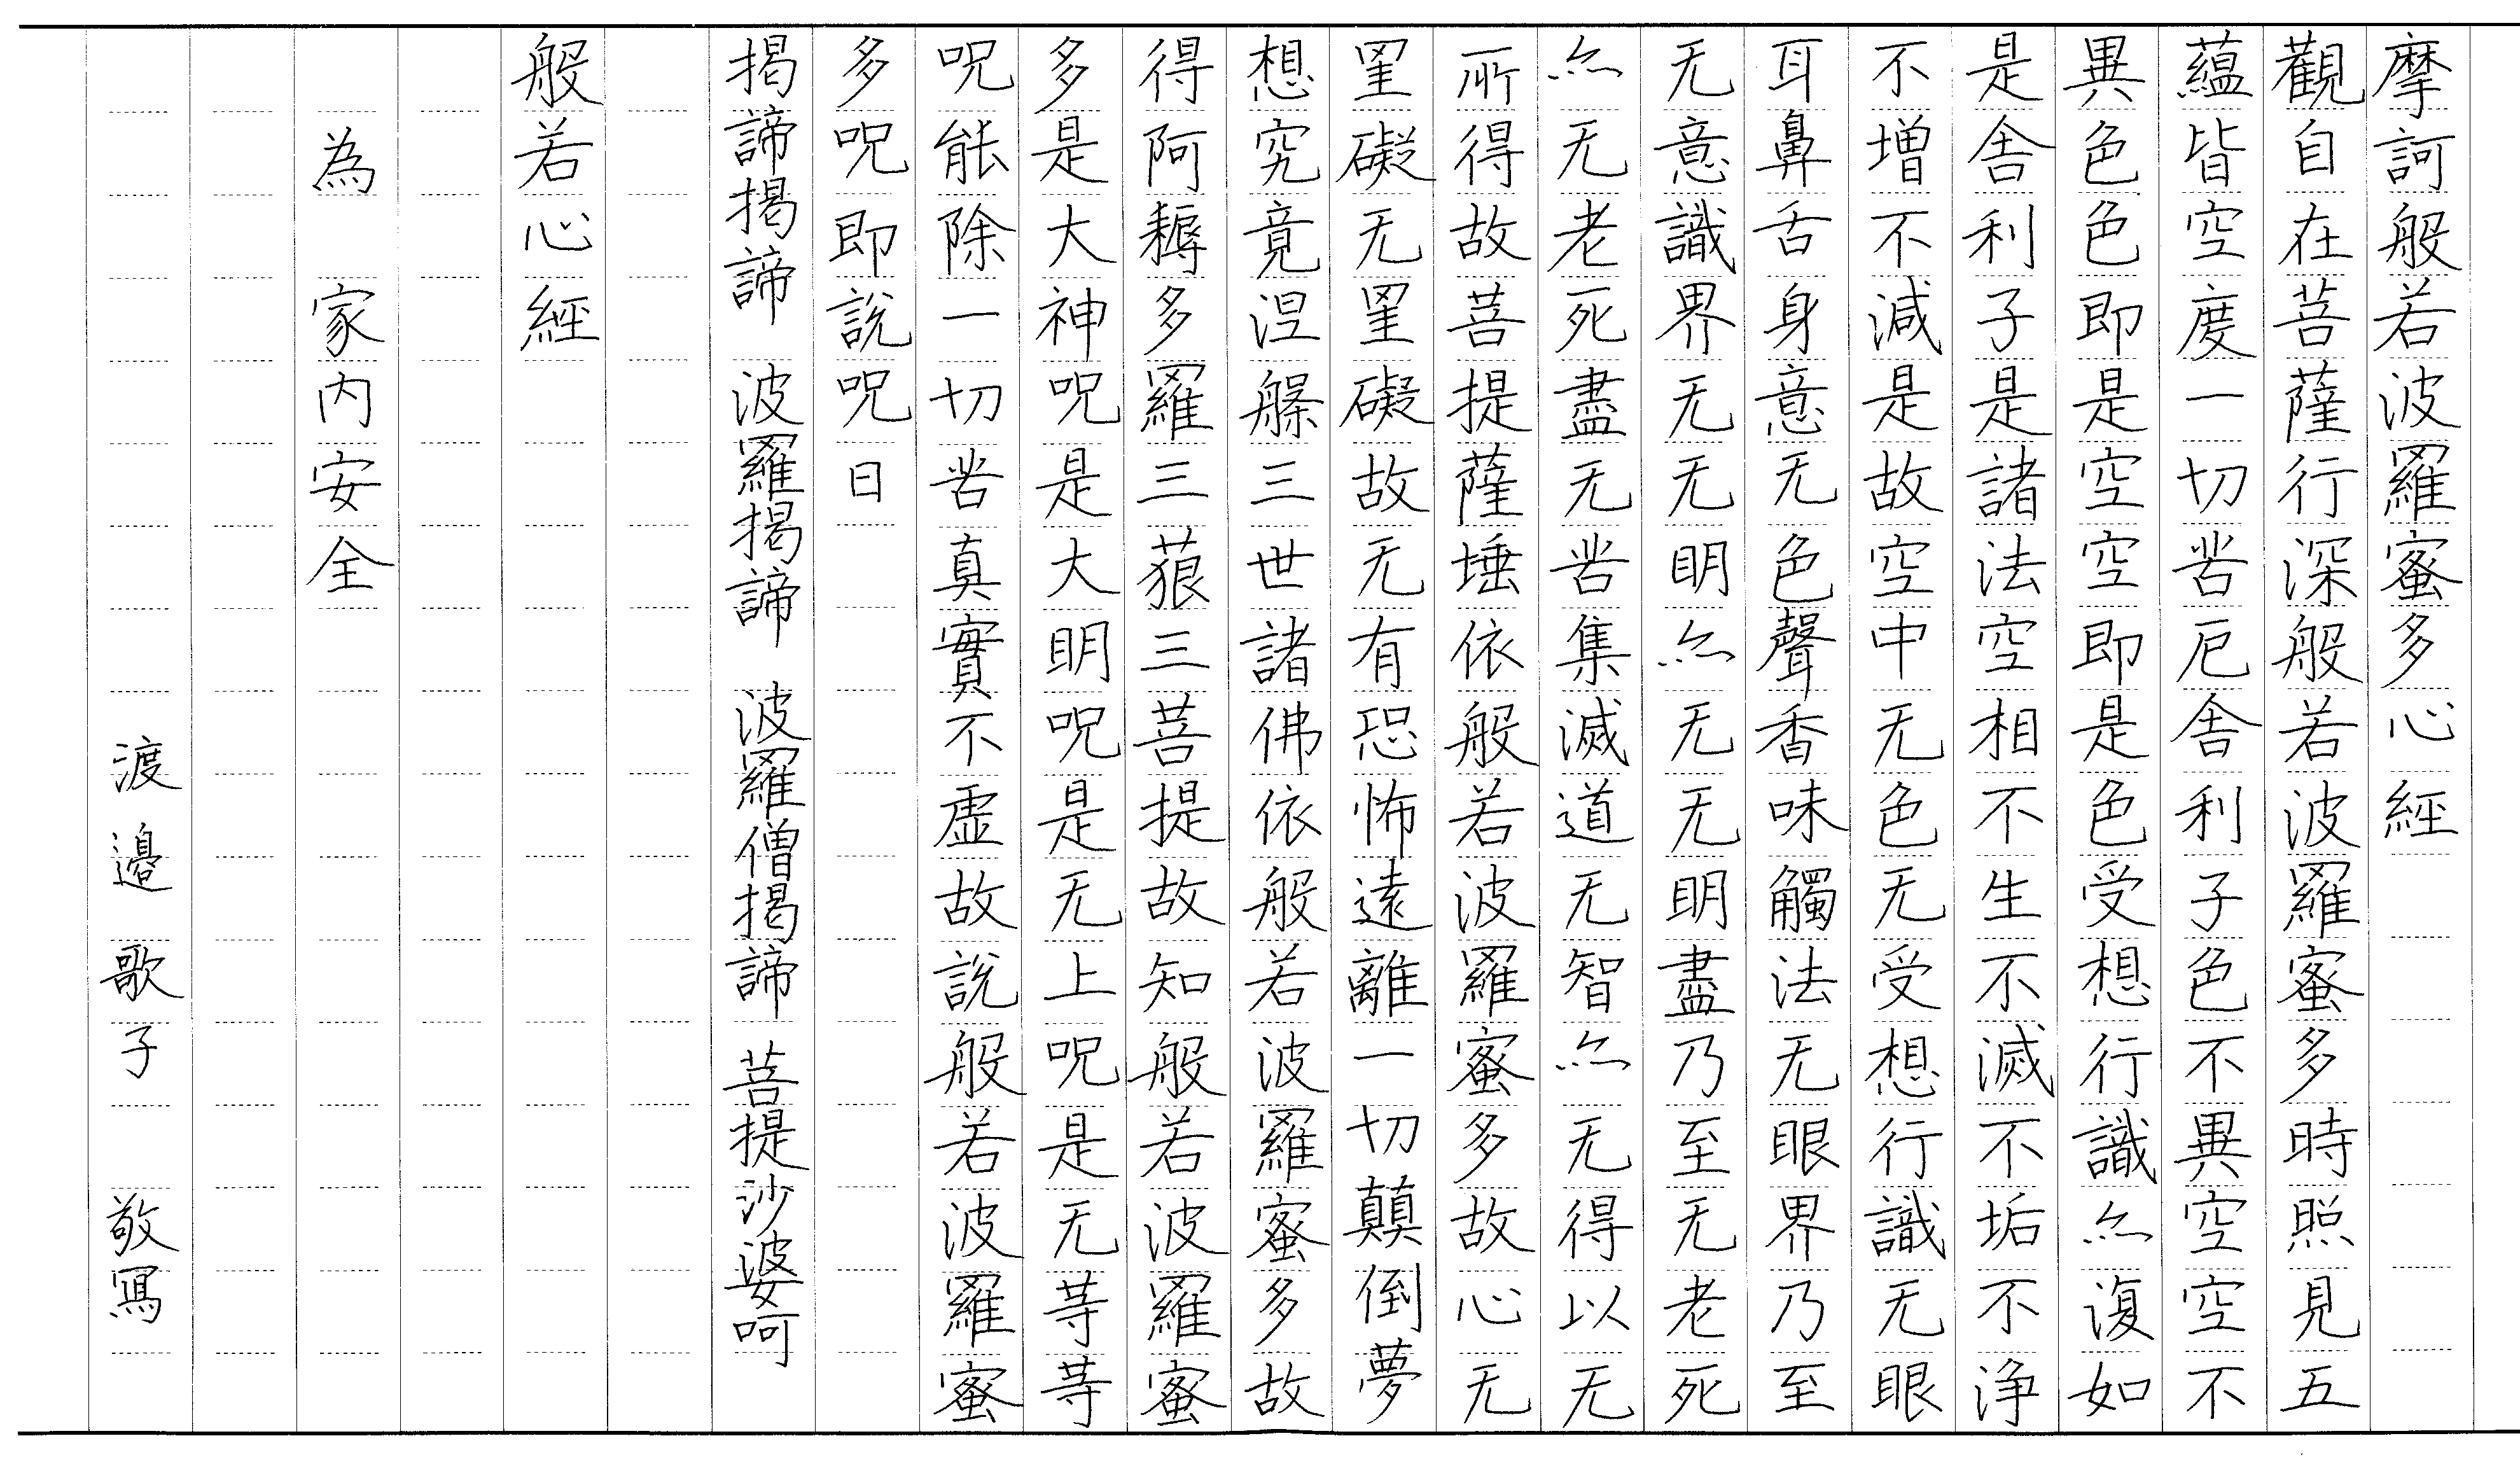 摩訶般若波羅蜜多心經
觀自在菩薩行深般若波羅蜜多時照見五
蘊皆空度一切苦厄舍利子色不異空空不
異色色即是空空即是色受想行識亦復如
是舍利子是諸法空相不生不滅不垢不淨
不增不減是故空中无色无受想行識无眼
耳鼻舌身意无色聲香味觸法无眼界乃至
无意識界无无明亦无无明盡乃至无老死
亦无老死盡无苦集滅道无智亦无得以无
所得故菩提薩埵依般若波羅蜜多故心无
罣礙无罣礙故无有恐怖遠離一切顛倒夢
想究竟涅槃三世諸佛依般若波羅蜜多故
得阿耨多羅三藐三菩提故知般若波羅蜜
多是大神呪是大明呪是无上呪是无等等
呪能除一切苦真實不虛故說般若波羅蜜
多呪即說呪曰
揭諦揭諦 波羅揭諦 波羅僧揭諦 菩提沙婆呵
般若心經
為 家内安全
渡邉歌子 敬寫